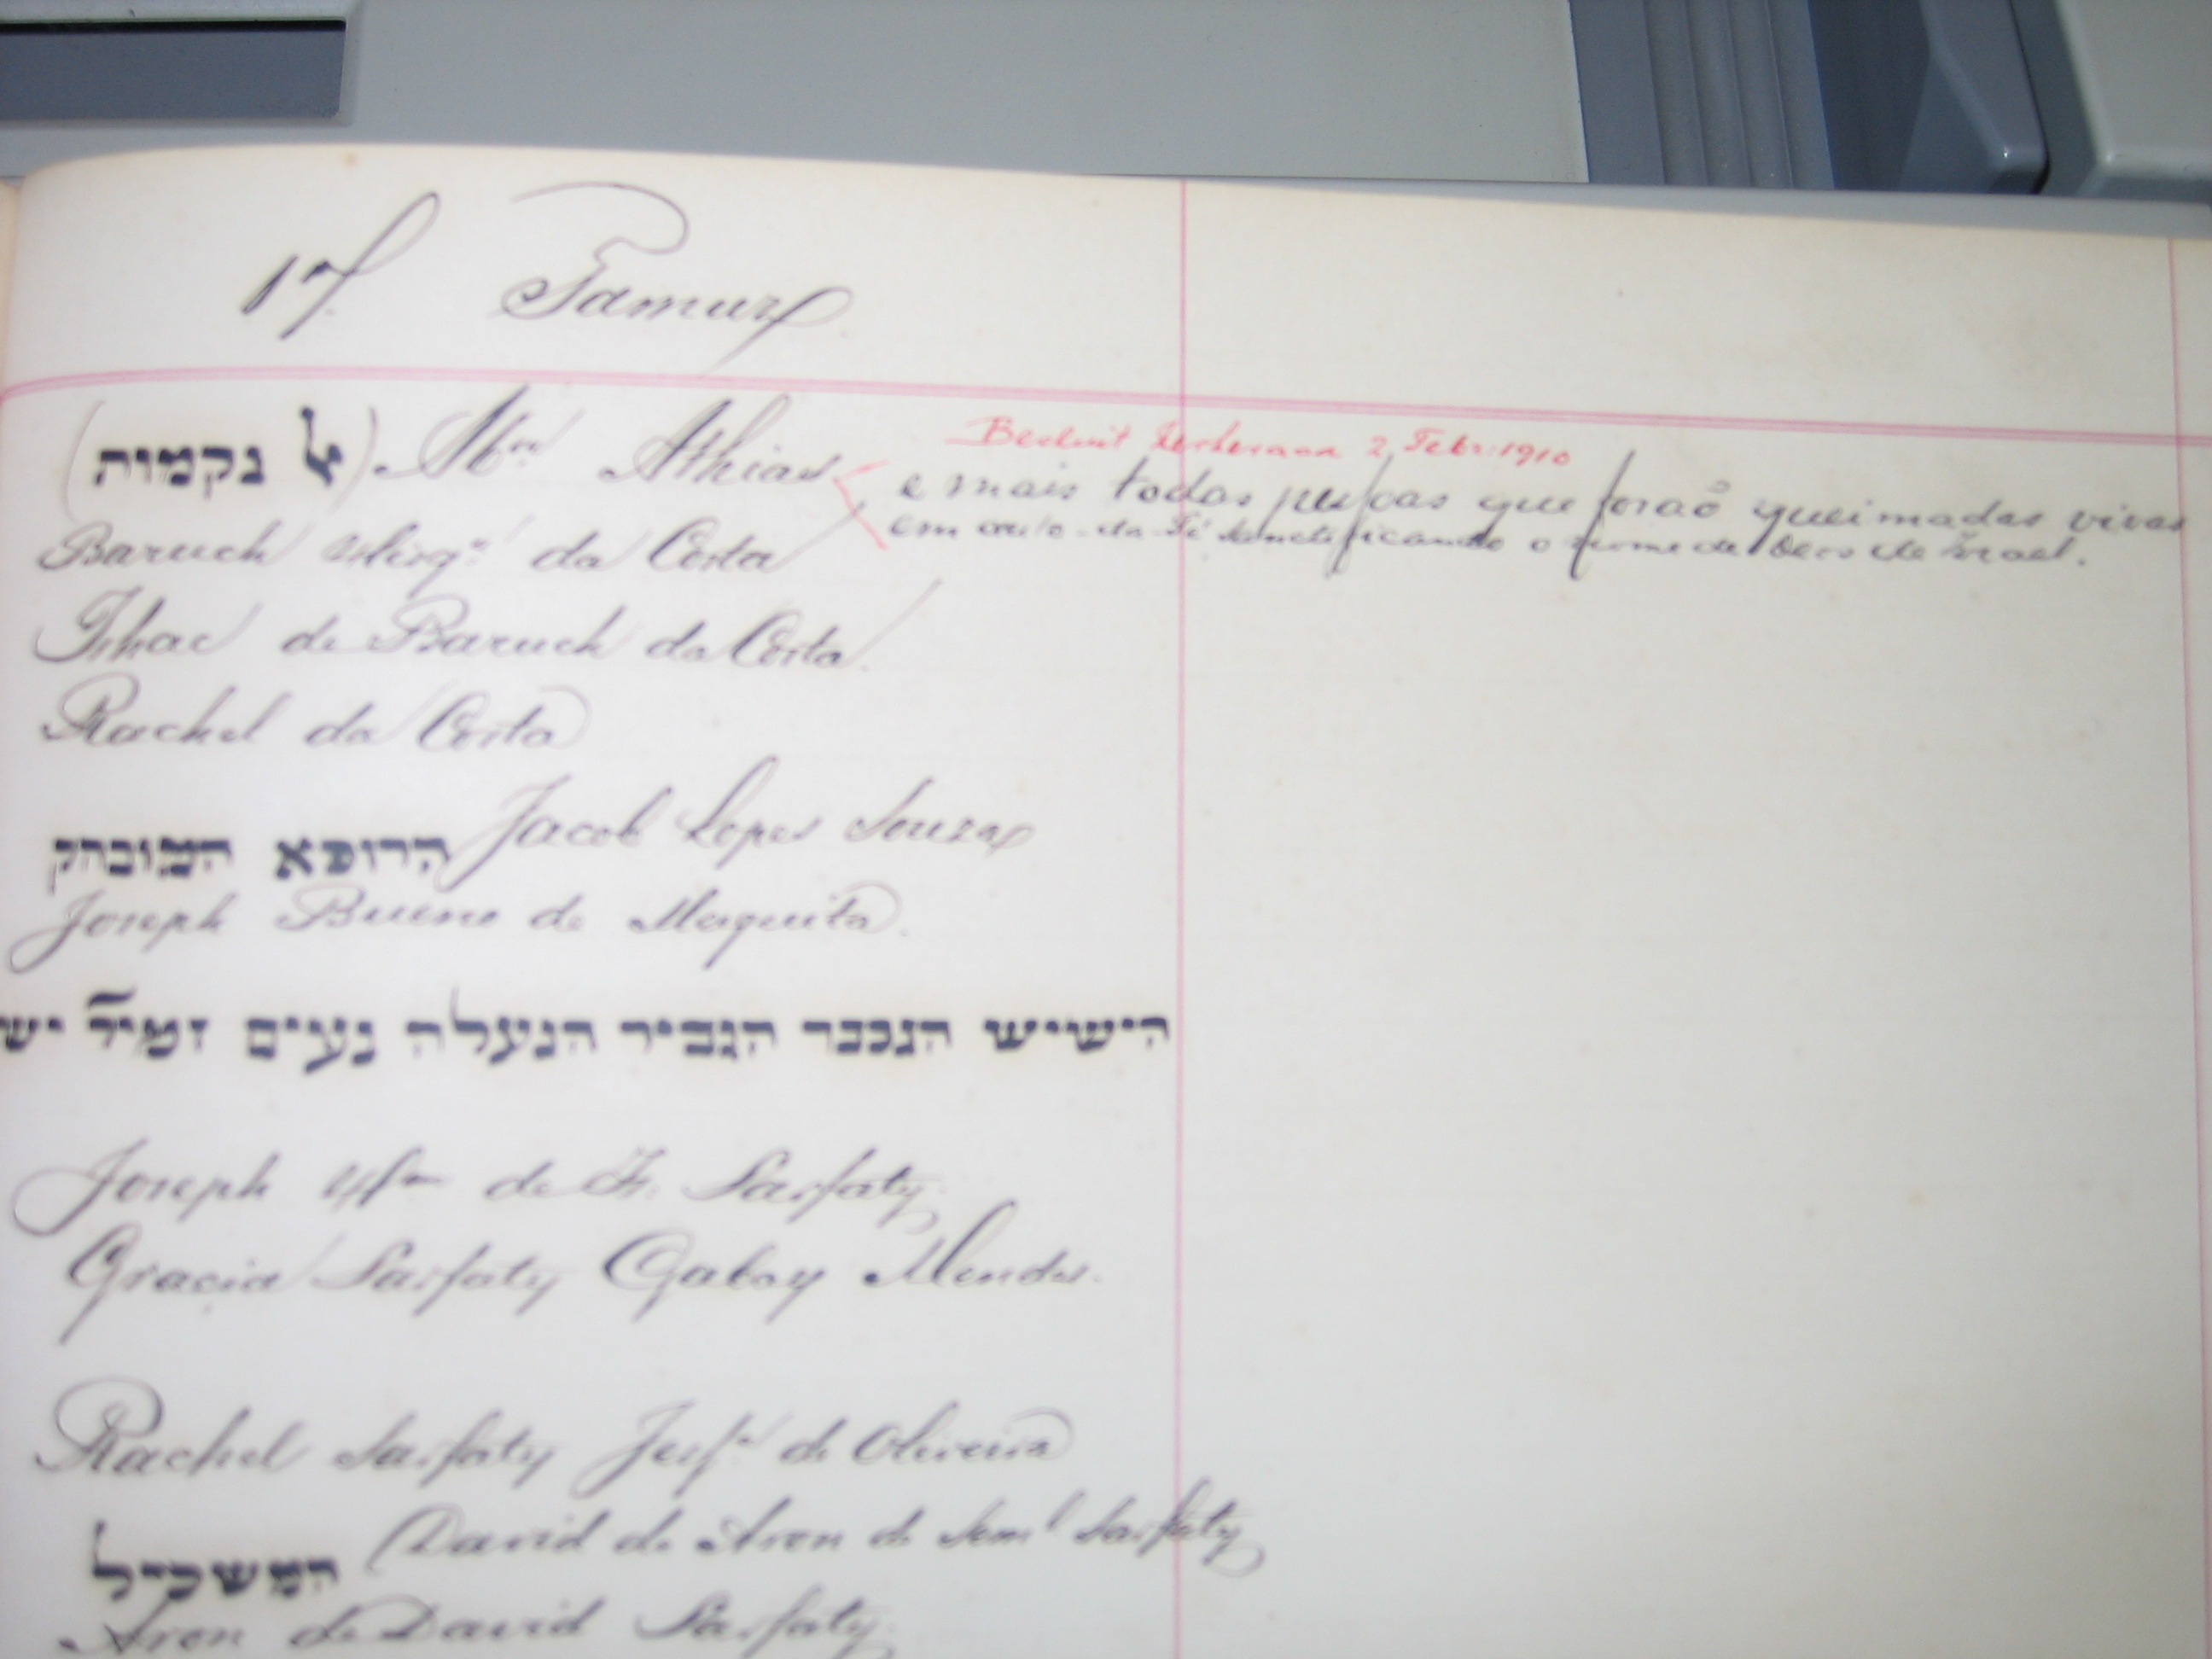 17 Tamuz
(אל נקמות) Abm Athias
Besluit Kerkeraad 2 Febr. 1910
e mais todas pessoas que foraõ queimadas vivas
em auto-da-Fé sanctificando o nome de Deos de Israel.
Baruch Hisq.ª da Costa
Ishac de Baruch da Costa.
Rachel da Costa
הרופא המובהק Jacob Lopes Souza
Joseph Bueno de Mesquita.
הישיש הנכבד הגביר הנעלה נעים זמיר יש
Joseph de Is. Sarfaty
Gracia Sarfaty Gaboy Mendes.
Rachel Sarfaty Jesn de Oliveira
המשכיל David de Aron de Seml Sarfaty
Aron de David Sarfaty